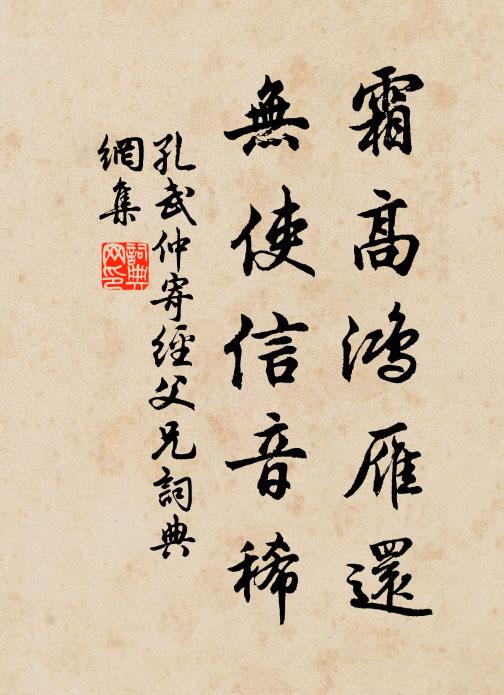 霜高鴻雁還
無使信音稀
孔武仲寄經父兄詞典
網集
詞典
网印